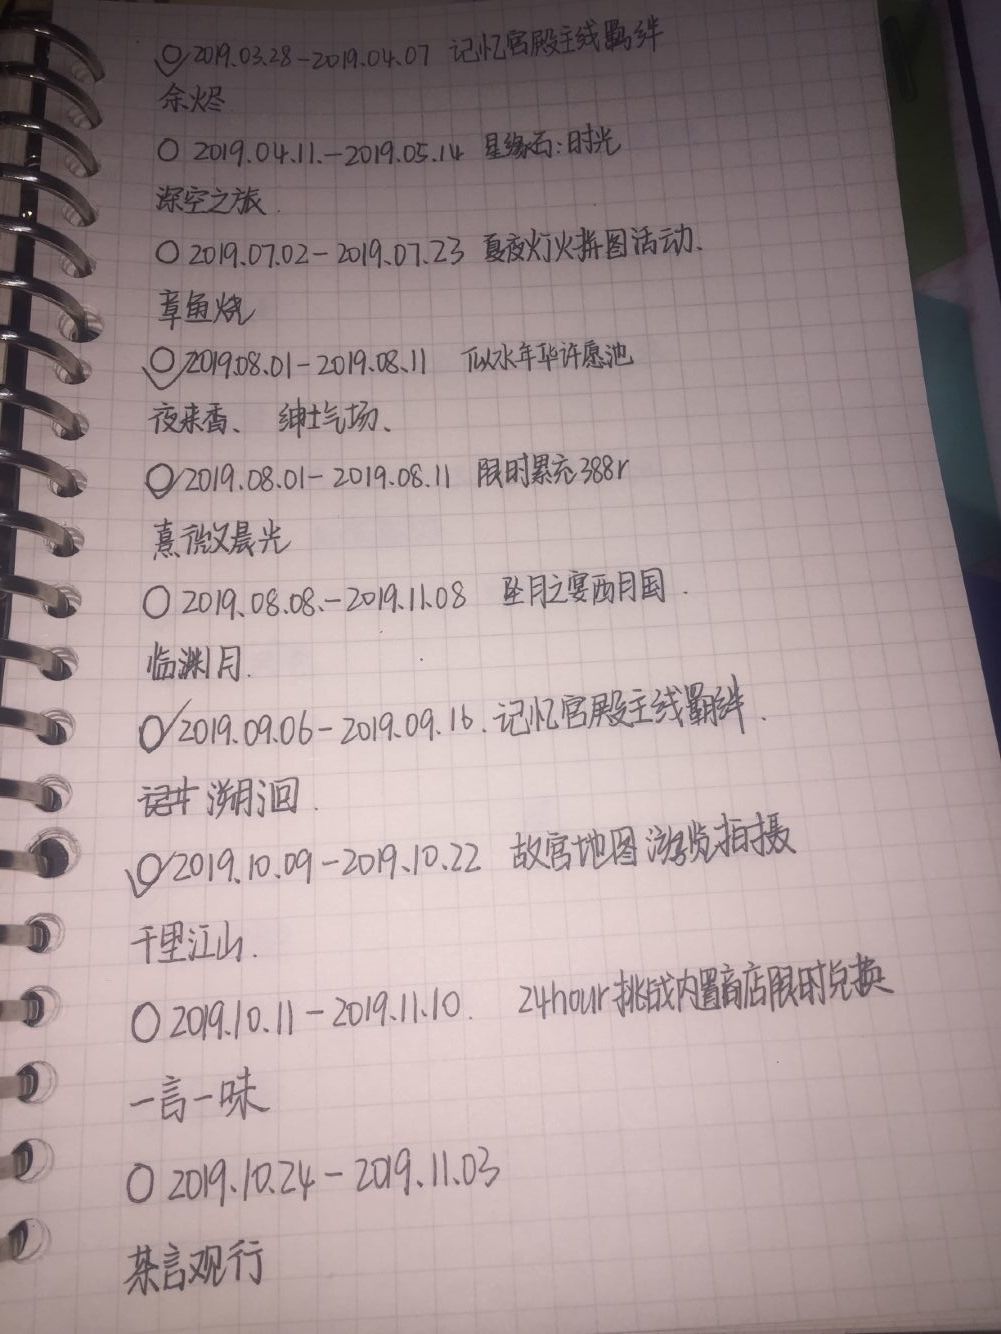 2019.03.28-2019.04.07 记忆宫殿主线羁绊
余烬
2019.04.11.-2019.05.14 星缘石:时光
深空之旅.
2019.07.02-2019.07.23 夏夜灯火拼图活动.
章鱼烧
2019.08.01-2019.08.11 似水年华许愿池
夜来香、 绅士气场、
2019.08.01-2019.08.11 限时累充388r
熹微晨光
2019.08.08.-2019.11.08 坠月之宴西月国.
临渊月.
2019.09.06-2019.09.16.记忆宫殿主线羁绊.
溯洄.
2019.10.09-2019.10.22 故宫地图游览拍摄
千里江山.
2019.10.11-2019.11.10. 24hour挑战内置商店限时兑换
一言一味
2019.10.24-2019.11.03
茶言观行